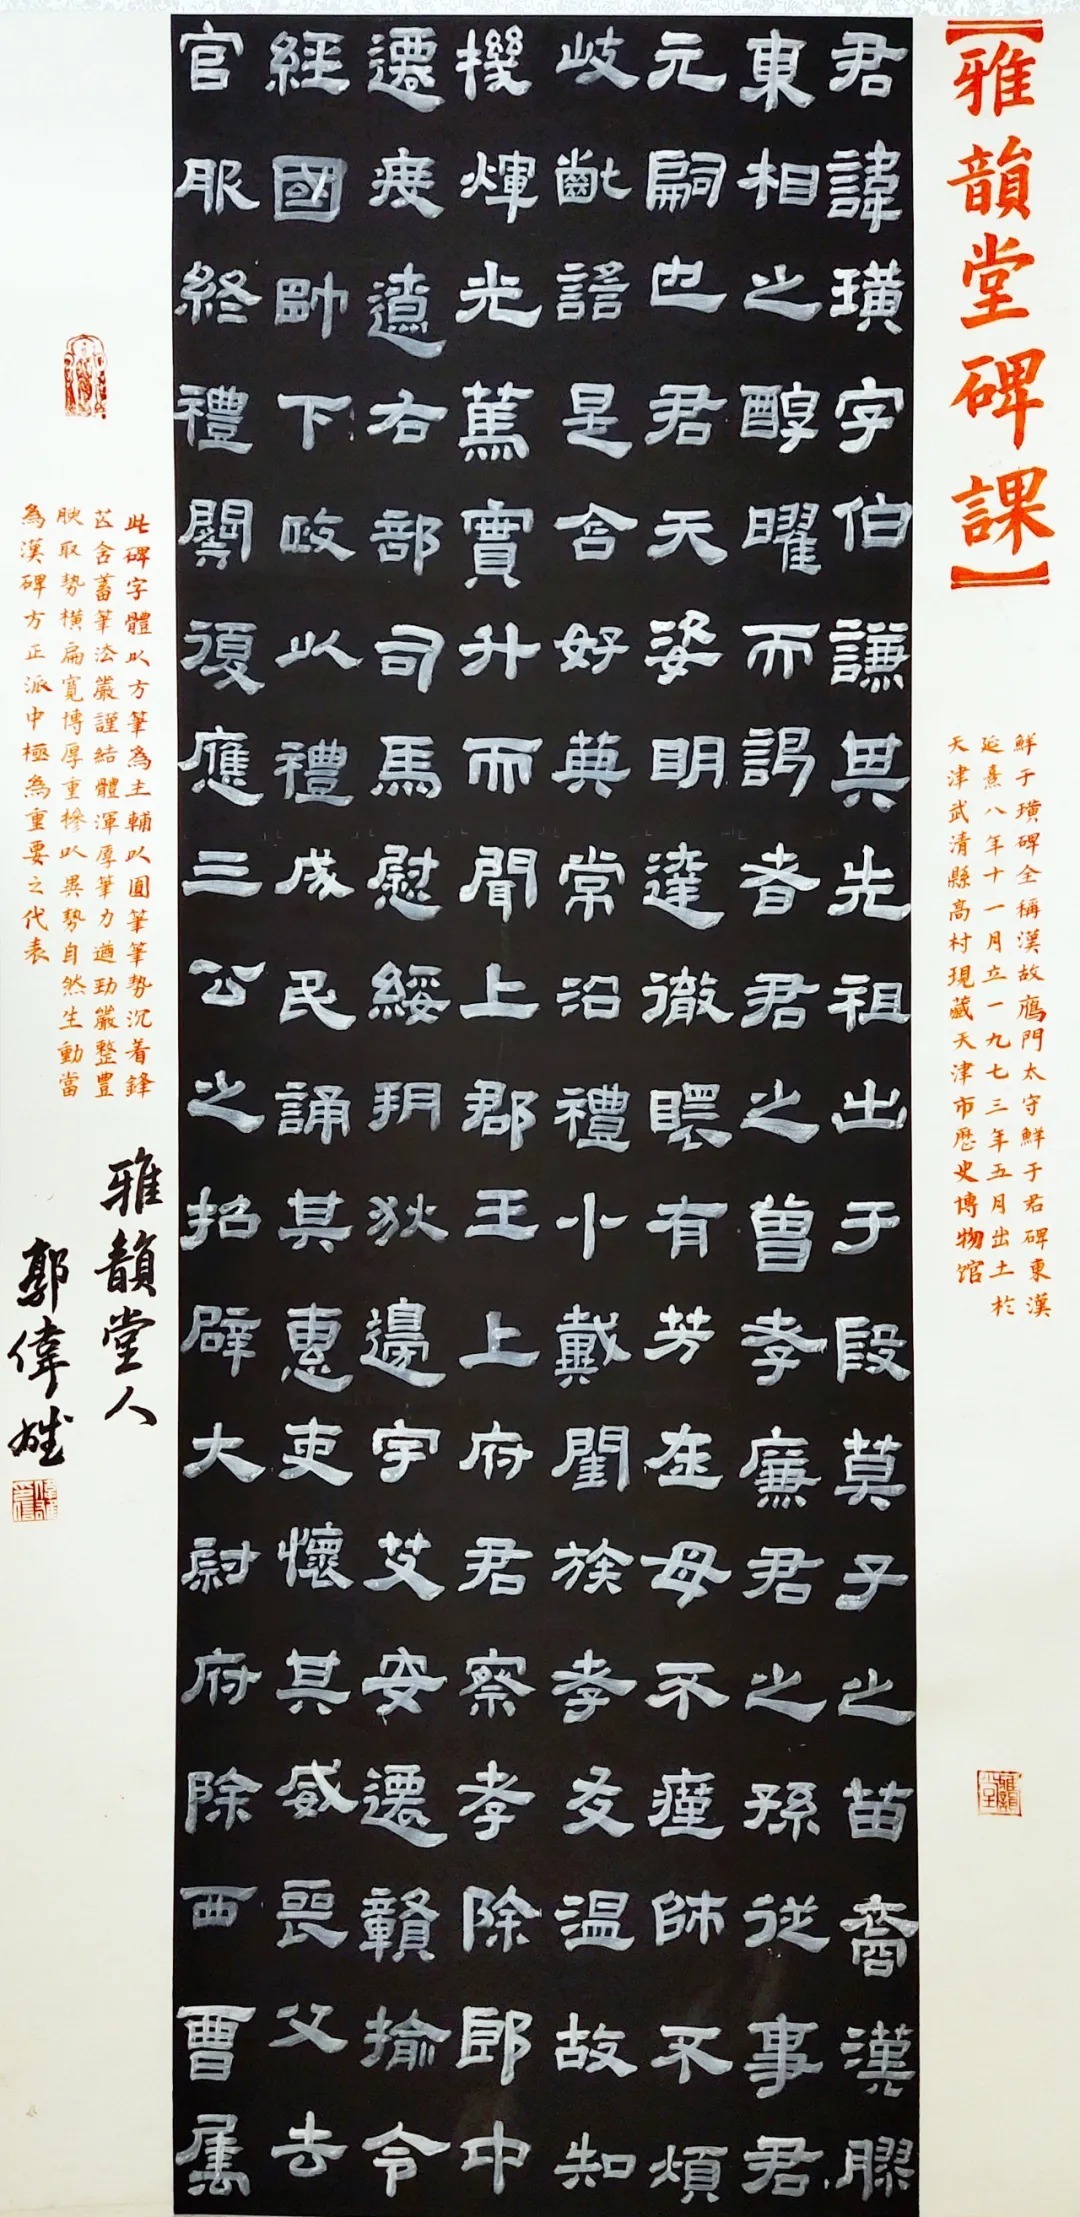 【雅韻堂碑課】
鮮于璜碑全稱漢故鴈門太守鮮于君碑東漢
延熹八年十一月立一九七三年五月出土於
天津武清縣高村現藏天津市歷史博物馆
君諱璜字伯謙其先祖出于殷箕子之苗裔漢膠
東相之醇曜而謁者君之曾孝廉君之孫從事君
元嗣也君天姿明達徹有芳在母不瘇師不煩
岐齔謠是含好典常治禮小戴閨族孝友溫故知
機煇光篤實升而聞上郡王上府君察孝除郎中
遷度遼右部司馬慰綏朔狄邊宇艾安遷贛揄令
經國帥下政以禮成民誦其惠吏懷其威喪父去
官服終禮闋復應三公之招辟大尉府除西曹屬
此碑字體以方筆為主輔以圓筆筆勢沉着鋒
芒含蓄筆法嚴謹結體渾厚筆力遒劲嚴整豐
腴取势橫扁寬博厚重摻以異勢自然生動當
為漢碑方正派中極為重要之代表
雅韻堂人
郭偉雄
雅韻堂